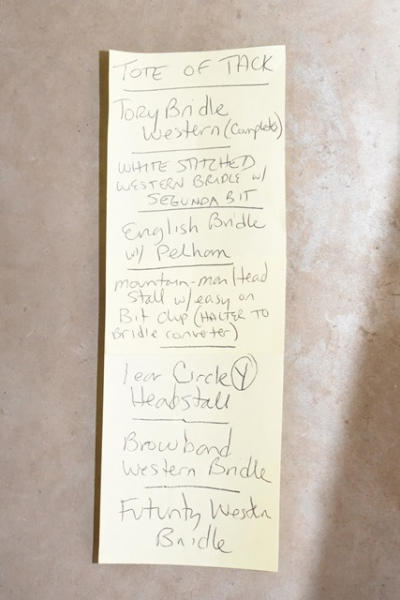 TOTE OF TACK
Tory Bridle
Western (Complete)
WHITE STITCHED
WESTERN BRIDLE W/
SEGUNDA BIT
English Bridle
w/ Pelham
mountain-man Head
Stall w/ easy on
Bit clip (HALTER TO
Bridle converter)
1 ear Circle Y
Headstall
Browband
Western Bridle
Futurity Western
Bridle